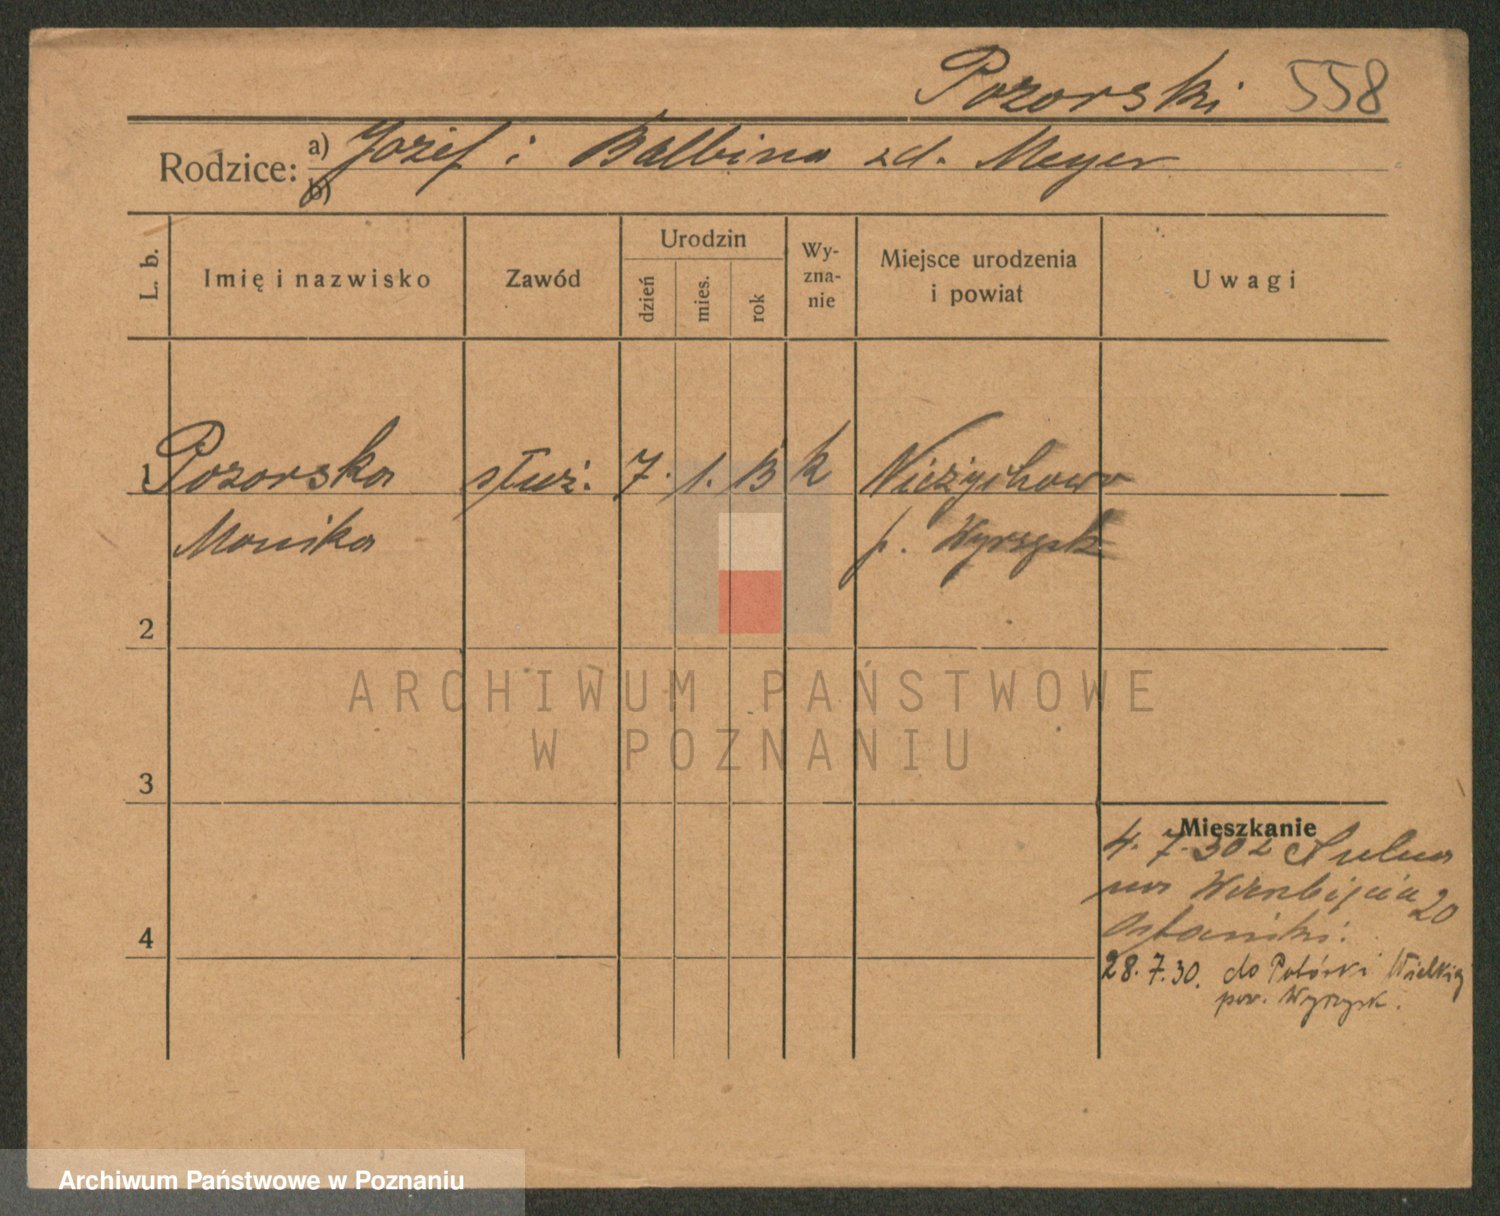 Pozorski 558
Rodzice: a) Józef i Balbina zd. Meyer
b)
L. b. Imię i nazwisko Zawód Urodzin dzień mies. rok Wy-zna-nie Miejsce urodzenia i powiat Uwagi
1 Pozorska służ. 7. 1. 13 k Nieżychowo
Monika p. Wyrzysk
2
ARCHIWUM PAŃSTWOWE
W POZNANIU
3
Mieszkanie
4. 7. 30 z
na 20
4
28. 7. 30. do Wielkiej
pow. Wyrzysk.
Archiwum Państwowe w Poznaniu